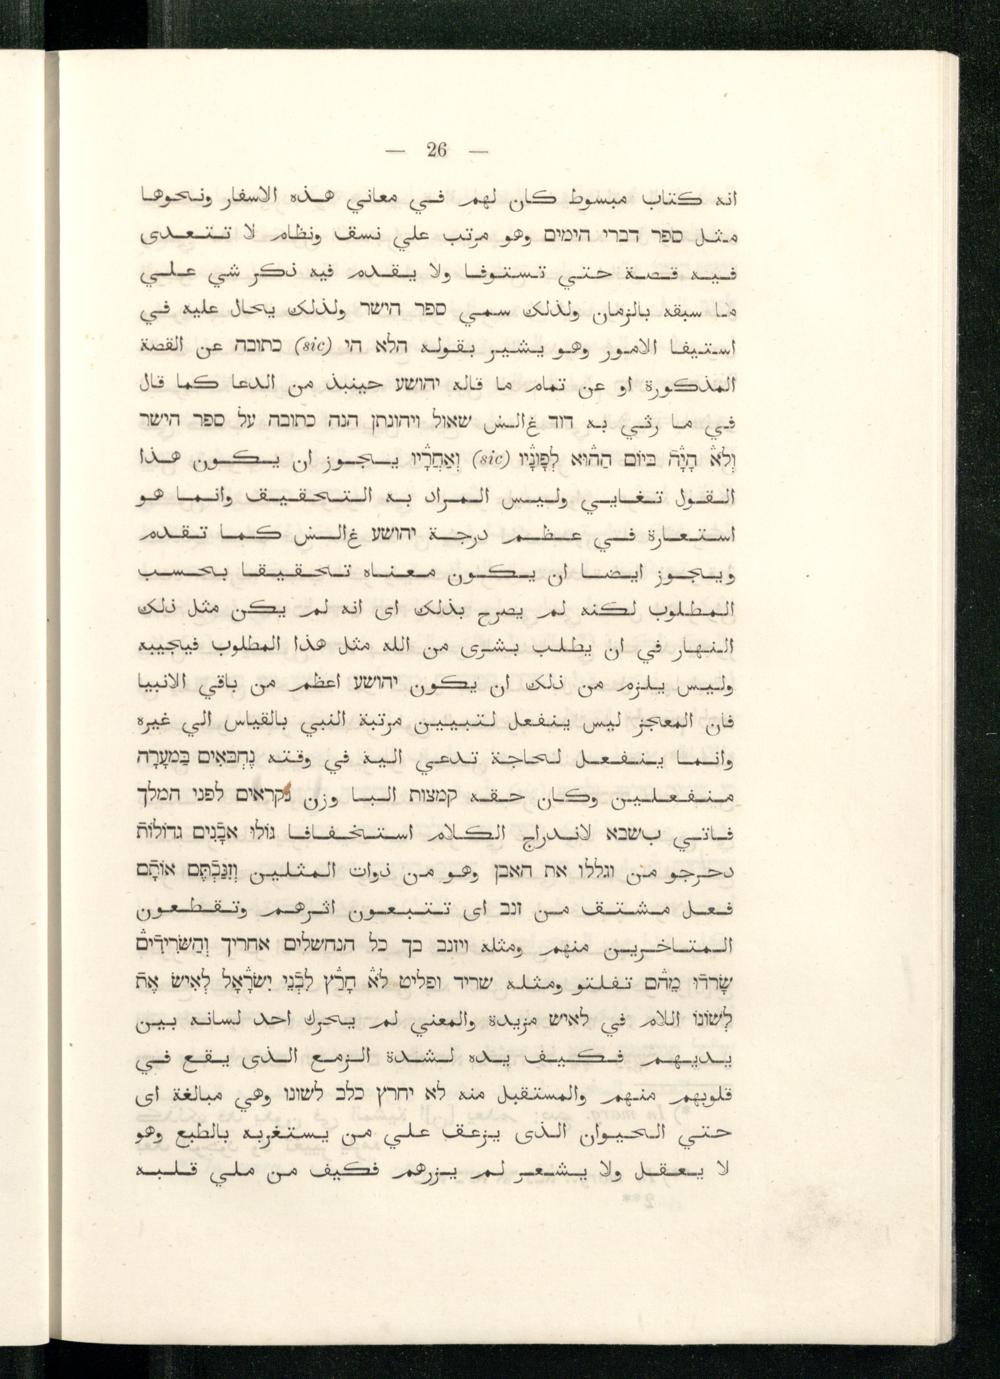 — 26 —
انه كتاب مبسوط كان لهم في معاني هذه الاسفار ونحوها
مثل ספר דברי הימים وهو مرتب علي نسق ونظام لا تتعدى
فيه قصة حتي تستوفا ولا يقدم فيه ذكر شي علي
ما سبقه بالزمان ولذلك سمي ספר הישר ولذلك يحال عليه في
استيفا الامور وهو يشير بقوله הלא הי (sic) כתובה عن القصة
المذكورة او عن تمام ما قاله יהושע حينيذ من الدعا كما قال
في ما رثي به דוד غالش שאול ויהונתן הנה כתובה על ספר הישר
וְלֹא הָיָה כיום הַהוּא לְפָנָיו (sic) וְאַחֲרָיו يجوز ان يكون هذا
القول تغايي وليس المراد به التحقيق وانما هو
استعارة في عظم درجة יהושע غالش كما تقدم
ويجوز ايضا ان يكون معناه تحقيقا بحسب
المطلوب لكنه لم يصرح بذلك اى انه لم يكن مثل ذلك
النهار في ان يطلب بشرى من الله مثل هذا المطلوب فيجيبه
وليس يلزم من ذلك ان يكون יהושע اعظم من باقي الانبيا
فان المعجز ليس ينفعل لتبيين مرتبة النبي بالقياس الي غيره
وانما ينفعل لحاجة تدعي الية في وقته נֶחְבּאִים בַּמְעָרָה
منفعلين وكان حقه קמצות البا وزن נקראים לפני המלך
فاتي بשבא لاندراج الكلام استخفافا גּוֹלּוּ אבָנים גדולות
دحرجو من וגללו את האבן وهو من ذوات المثلين וְזִנַּבְתֶּם אוֹתָם
فعل مشتق من זנב اى تتبعون اثرهم وتقطعون
المتاخرين منهم ومثله ויזנב בך כל הנחשלים אחריך וְהַשְּׂרִידִים
שָׂרדוּ מֵהֶם تفلتو ومثله שריד ופליט לֹא חָרַץ לִבְנֵי יִשְׂרָאֵל לְאִישׁ אֶת
לְשׁוֹנוֹ اللام في לאיש مزيدة والمعني لم يحرك احد لسانه بين
يديهم فكيف يده لشدة الزمع الذى يقع في
قلوبهم منهم والمستقبل منه לא יחרץ כלב לשונו وهي مبالغة اى
حتي الحيوان الذى يزعق علي من يستغربه بالطبع وهو
لا يعقل ولا يشعر لم يزرهم فكيف من ملي قلبه